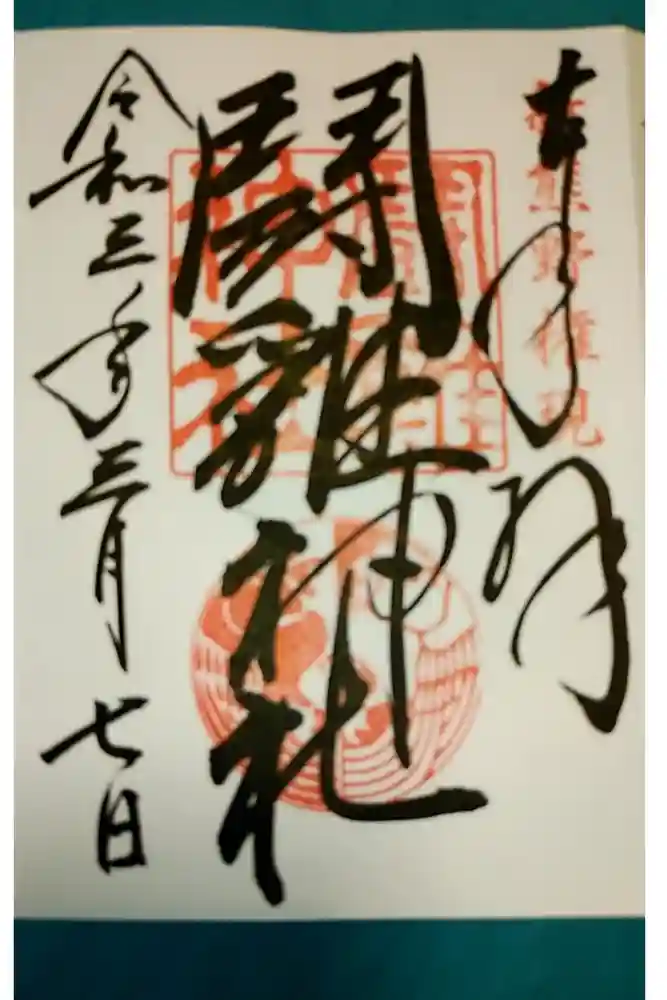 奉拝
新熊野権現
闘雞神社
闘雞神社
令和三年三月七日